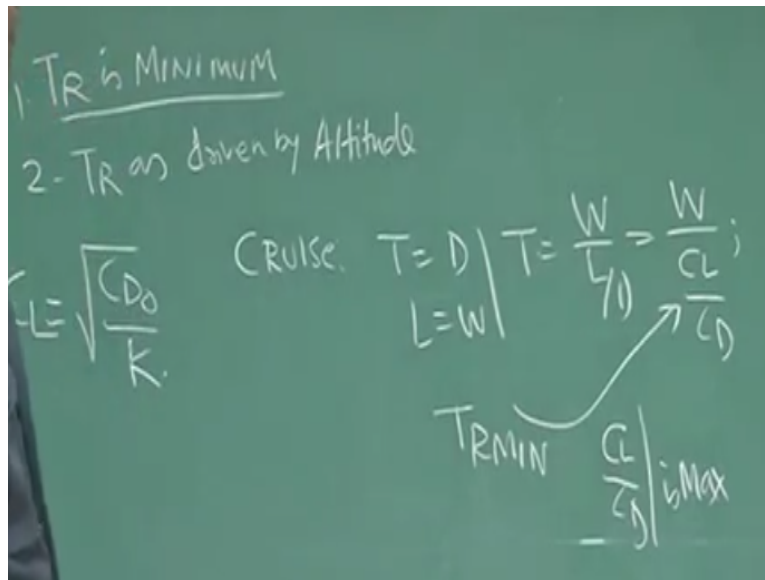 1. TR is MINIMUM
2- TR as driven by Altitude
CRUISE. T = D | T = W / L/D = W / CL/CD ;
L = W
CL = √CD0/K.
TRMIN CL/CD | is Max